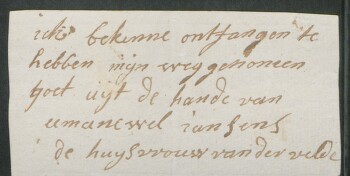 ick bekenne ontfangen te
hebben mijn weg genomen
goet uijt de hande van
emanewel iansens
de huijsvrouw vander velde